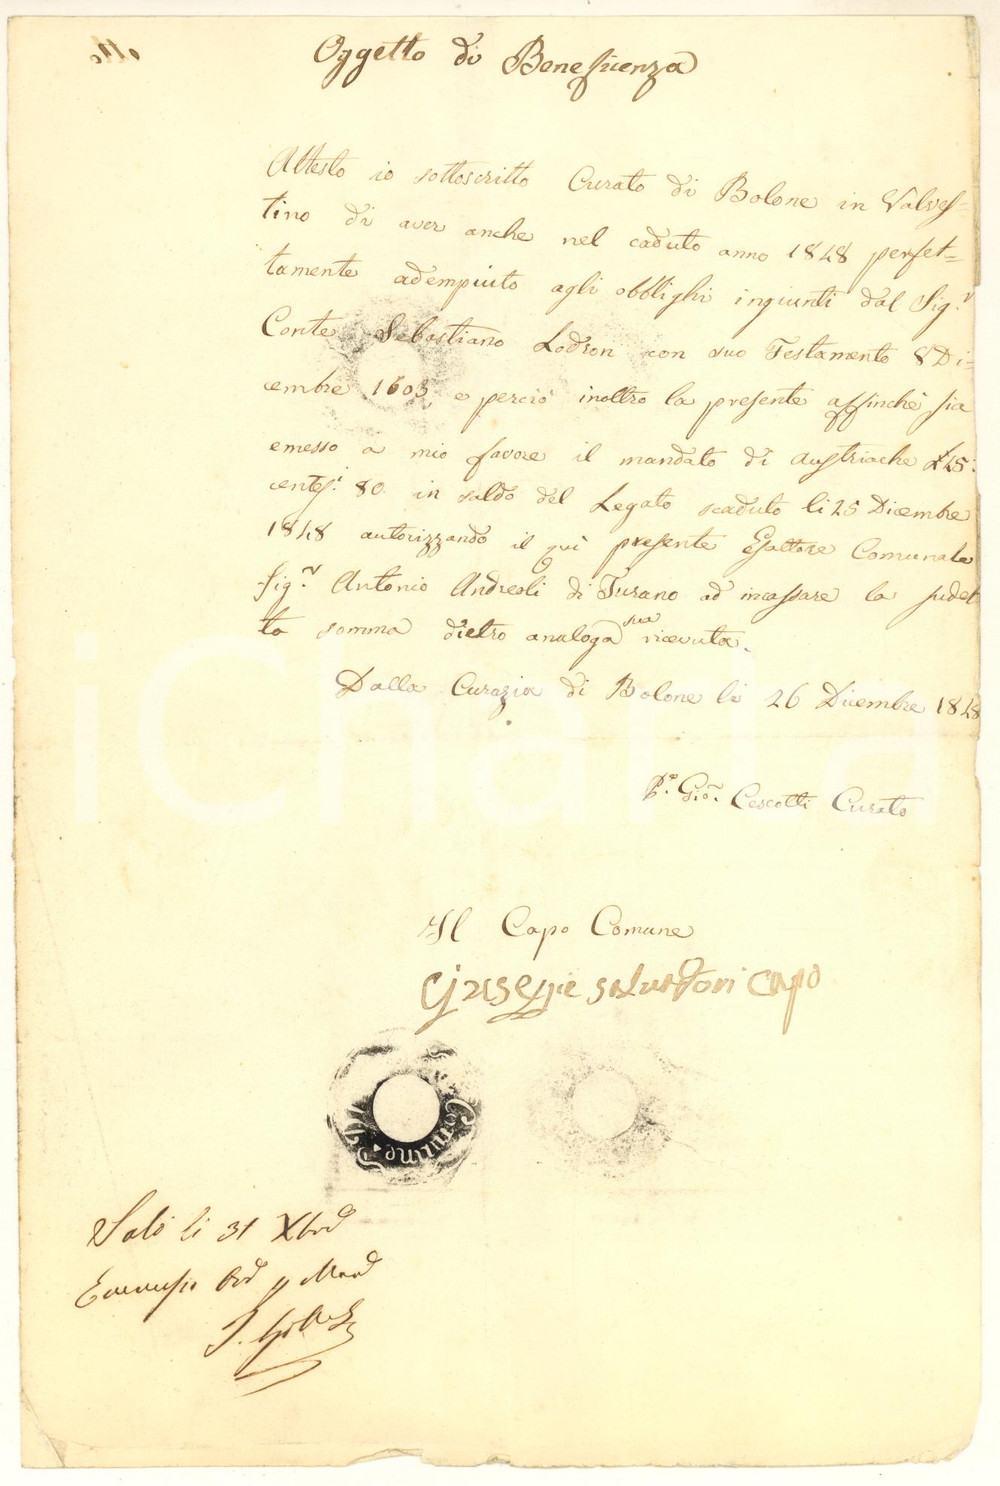 Oggetto di Beneficenza
Attesto io sottoscritto Curato di Bolone in Valves=
tino di aver anche nel caduto anno 1848 perfet=
tamente adempiuto agli obblighi ingiunti dal Sig.r
Conte Sebastiano Lodron con suo Testamento 8 Di=
cembre 1603, e perciò inoltro la presente affinchè sia
emesso a mio favore il mandato di Austriache £45:
centes.i 80. in saldo del Legato scaduto li 25 Dicembre
1848 autorizzando il quì presente Esattore Comunale
Sig.r Antonio Andreoli di Turano ad incassare la sudet
ta somma dietro analoga sua ricevuta.
Dalla Curazia di Bolone li 26 Dicembre 1848
P.e Gio. Cescotti Curato
Il Capo Comune
Giuseppe Salvadori Capo
Comune
Salò li 31 Xbre
iCharta